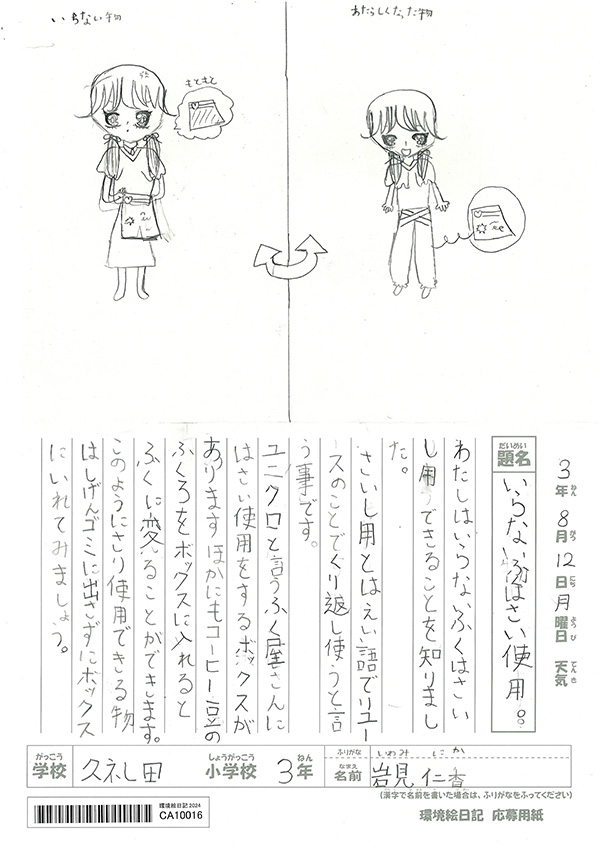 いらない物
あたらしくなった物
もともと
3年 8月 12日 月曜日 天気
ねん がつ にち ようび てんき
だいめい
題名
いらないふくはさい使用。
わたしはいらないふくはさい
し用できることを知りまし
た。
さいし用とはえい語でリユー
スのことでくり返し使うと言
う事です。
ユニクロと言うふく屋さんに
はさい使用をするボックスが
ありますほかにもコーヒー豆の
ふくろをボックスに入れると
ふくに変ることができます。
このようにさり使用できる物
はしげんゴミに出さずにボックス
にいれてみましょう。
がっこう
学校
久礼田
しょうがっこう
小学校
3年
ねん
ふりがな
いわみ にか
なまえ
名前
岩見 仁香
(漢字で名前を書いた場合は、ふりがなをふってください)
環境絵日記2024
CA10016
環境絵日記 応募用紙